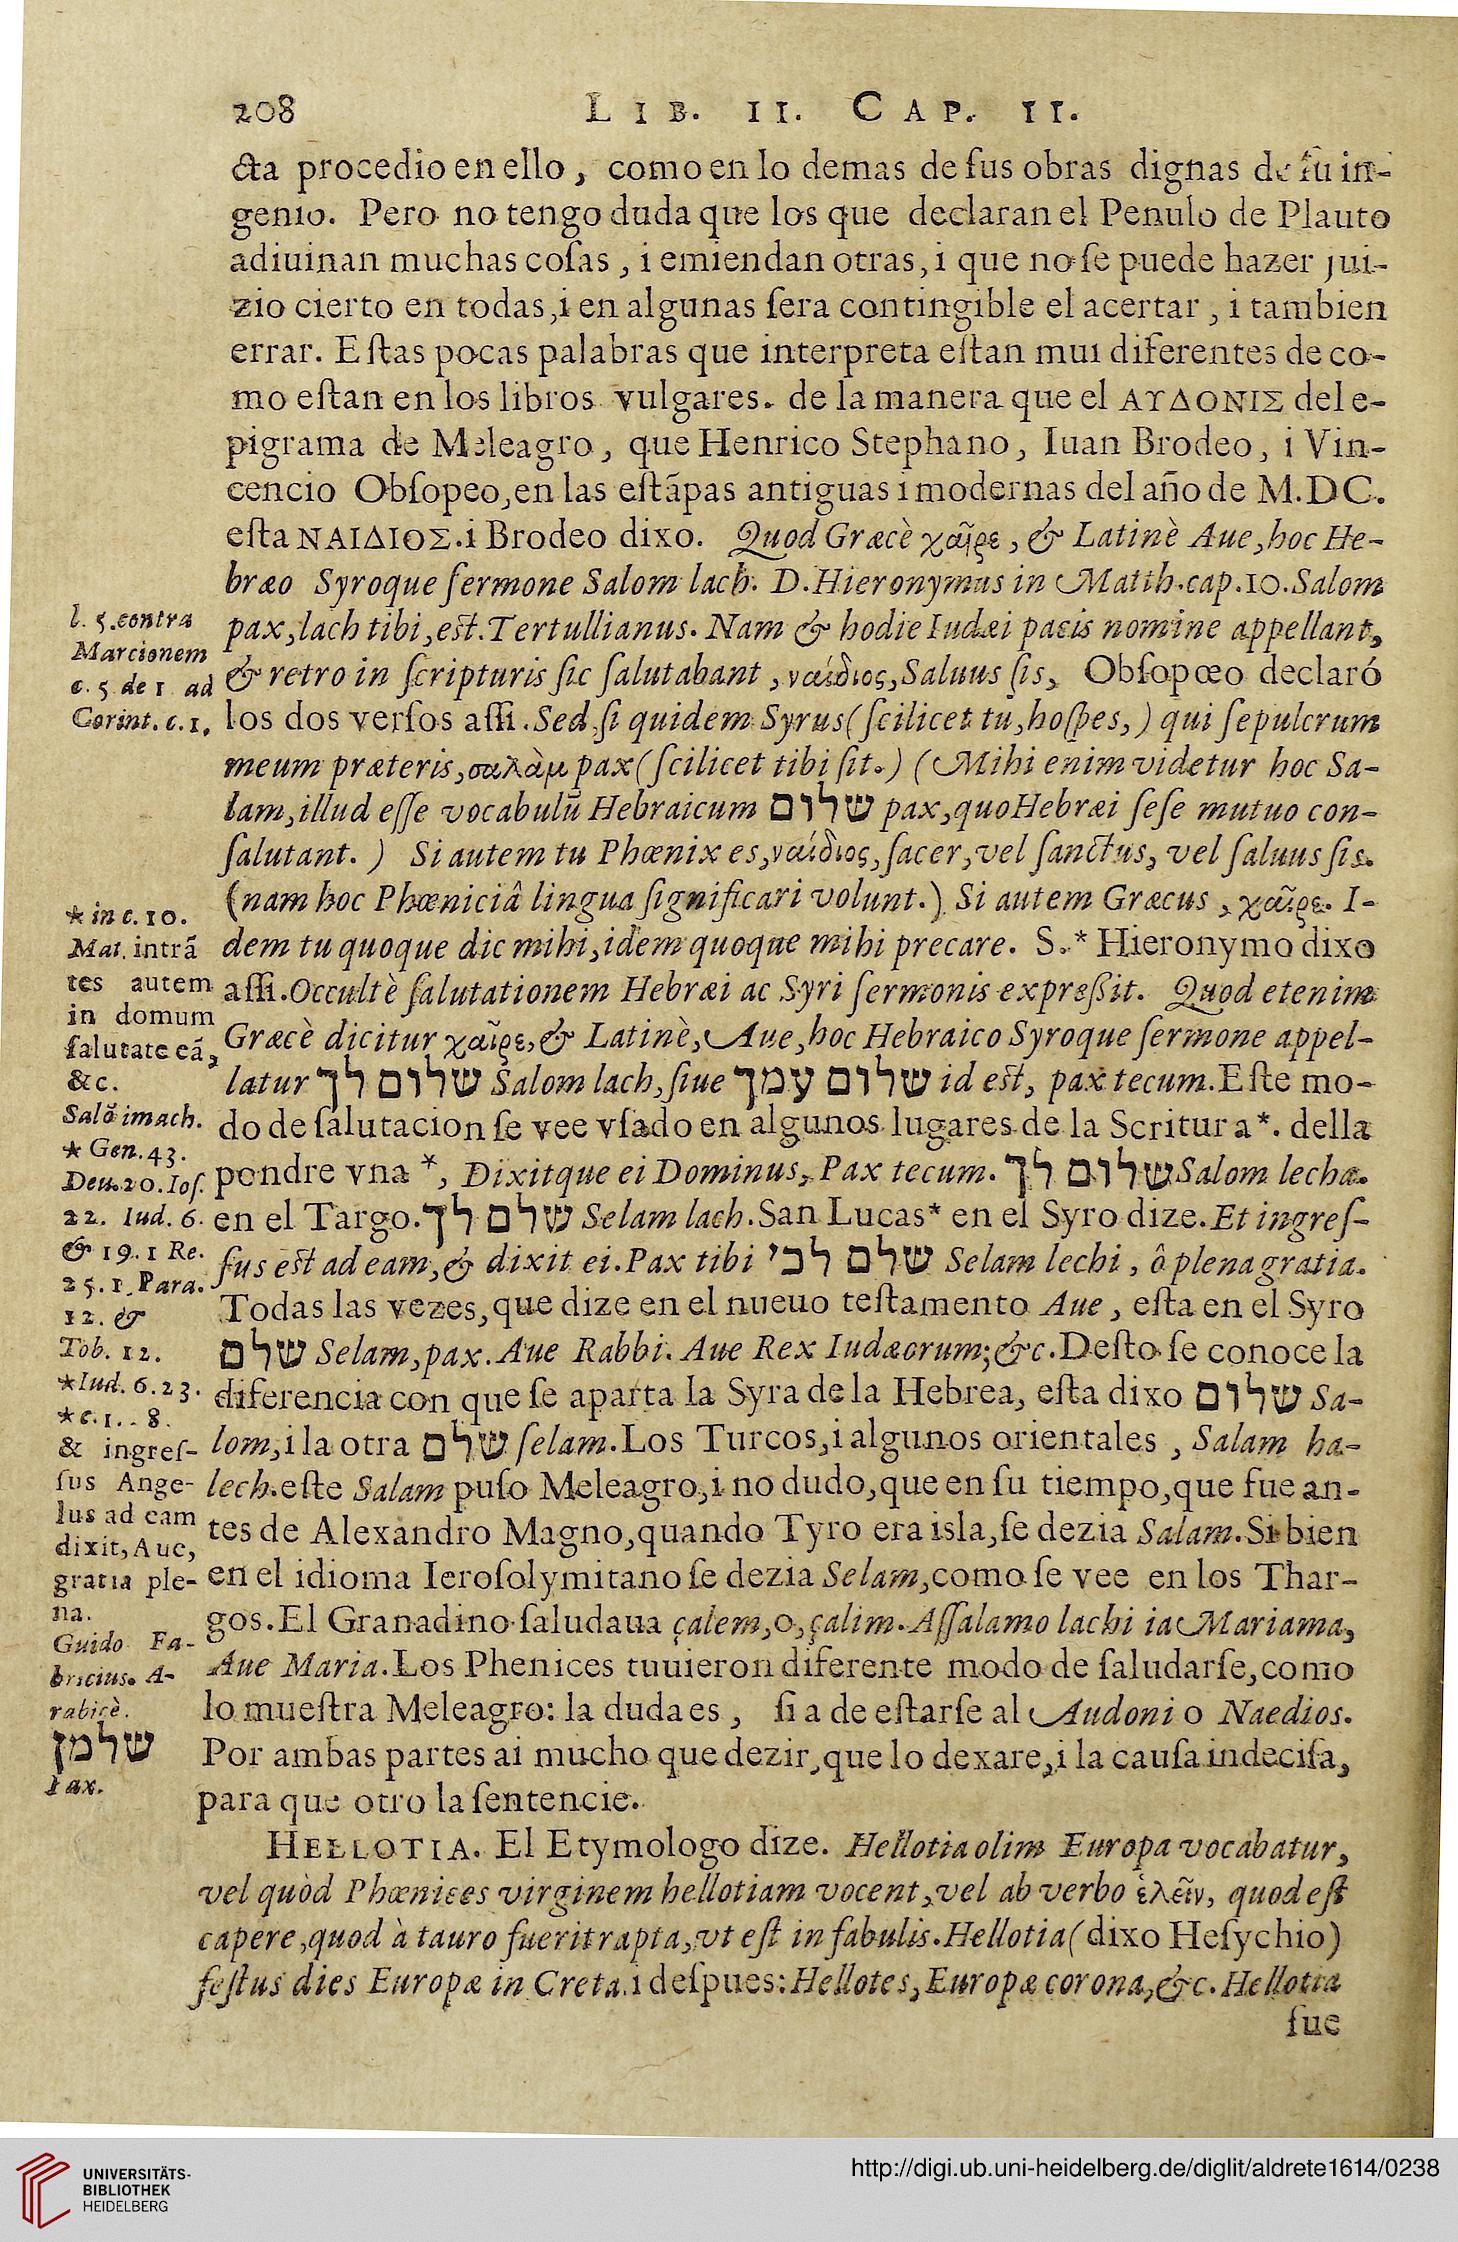 208 LIB. II. CAP. II.
cta procedio en ello, como en lo demas de ſus obras dignas de ſu in-
genio. Pero no tengo duda que los que declaran el Penulo de Plauto
adiuinan muchas coſas, i emiendan otras, i que no ſe puede hazer jui-
zio cierto en todas, i en algunas ſera contingible el acertar, i tambien
errar. Eſtas pocas palabras que interpreta eſtan mui diferentes de co-
mo eſtan en los libros vulgares. de la manera que el ΑΥΔΟΝΙΣ del e-
pigrama de Meleagro, que Henrico Stephano, Iuan Brodeo, i Vin-
cencio Obſopeo, en las eſtãpas antiguas i modernas del año de M.DC.
eſta ΝΑΙΔΙΟΣ. i Brodeo dixo. Quod Græcè χαῖρε, & Latinè Aue, hoc He-
bræo Syroque ſermone Salom lach. D. Hieronymus in Matth. cap. 10. Salom
pax, lach tibi, eſt. Tertullianus. Nam & hodie Iudæi pacis nomine appellant,
& retro in ſcripturis ſic ſalutabant, ναίδιος, Saluus ſis, Obſopœo declaró
los dos verſos aſſi. Sed ſi quidem Syrus (ſcilicet tu, hoſpes,) qui ſepulcrum
meum præteris, σαλὰμ pax (ſcilicet tibi ſit.) (Mihi enim videtur hoc Sa-
lam, illud eſſe vocabulũ Hebraicum שלום pax, quo Hebræi ſeſe mutuo con-
ſalutant.) Si autem tu Phœnix es, ναίδιος, ſacer, vel ſanctus, vel ſaluus ſis.
(nam hoc Phœniciâ lingua ſignificari volunt.) Si autem Græcus, χαῖρε. I-
dem tu quoque dic mihi, idem quoque mihi precare. S.* Hieronymo dixo
aſſi. Occultè ſalutationem Hebræi ac Syri ſermonis expreſsit. Quod etenim
Græcè dicitur χαῖρε, & Latinè, Aue, hoc Hebraico Syroque ſermone appel-
latur שלום לך Salom lach, ſiue שלום עמך id eſt, pax tecum. Eſte mo-
do de ſalutacion ſe vee vſado en algunos lugares de la Scritura*. della
pondre vna *, Dixitque ei Dominus, Pax tecum. שלום לך Salom lecha.
en el Targo. שלם לך Selam lach. San Lucas* en el Syro dize. Et ingreſ-
ſus eſt ad eam, & dixit ei. Pax tibi שלם לכי Selam lechi, ô plena gratia.
Todas las vezes, que dize en el nueuo teſtamento Aue, eſta en el Syro
שלם Selam, pax. Aue Rabbi. Aue Rex Iudæorum; &c. Deſto ſe conoce la
diferencia con que ſe aparta la Syra de la Hebrea, eſta dixo שלום Sa-
lom, i la otra שלם ſelam. Los Turcos, i algunos orientales, Salam ha-
lech. eſte Salam puſo Meleagro, i no dudo, que en ſu tiempo, que fue an-
tes de Alexandro Magno, quando Tyro era isla, ſe dezia Salam. Si bien
en el idioma Ieroſolymitano ſe dezia Selam, como ſe vee en los Thar-
gos. El Granadino ſaludaua çalem, o, çalim. Aſſalamo lachi ia Mariama,
Aue Maria. Los Phenices tuuieron diferente modo de ſaludarſe, como
lo mueſtra Meleagro: la duda es, ſi a de eſtarſe al Audoni o Naedios.
Por ambas partes ai mucho que dezir, que lo dexare, i la cauſa indeciſa,
para que otro la ſentencie.
HELLOTIA. El Etymologo dize. Hellotia olim Europa vocabatur,
vel quòd Phœnices virginem hellotiam vocent, vel ab verbo ἑλεῖν, quod eſt
capere, quod à tauro fuerit rapta, vt eſt in fabulis. Hellotia (dixo Heſychio)
feſtus dies Europæ in Creta. i deſpues: Hellotes, Europæ corona, &c. Hellotia
fue
l. 5. contra
Marcionem
c. 5 de 1 ad
Corint. c. 1.
* in c. 10.
Mat. intrã
tes autem
in domum
ſalutate eã,
&c.
Salõ imach.
* Gen. 43.
Deu. 20. Ioſ.
22. Iud. 6.
& 19. 1 Re.
25. 1. Para.
12. &
Tob. 12.
* Iud. 6. 23.
* c. 1. - 8.
& ingreſ-
ſus Ange-
lus ad eam
dixit, Aue,
gratia ple-
na.
Guido Fa-
bricius. A-
rabicè.
שלמן
Pax.
UNIVERSITÄTS-
BIBLIOTHEK
HEIDELBERG
http://digi.ub.uni-heidelberg.de/diglit/aldrete1614/0238